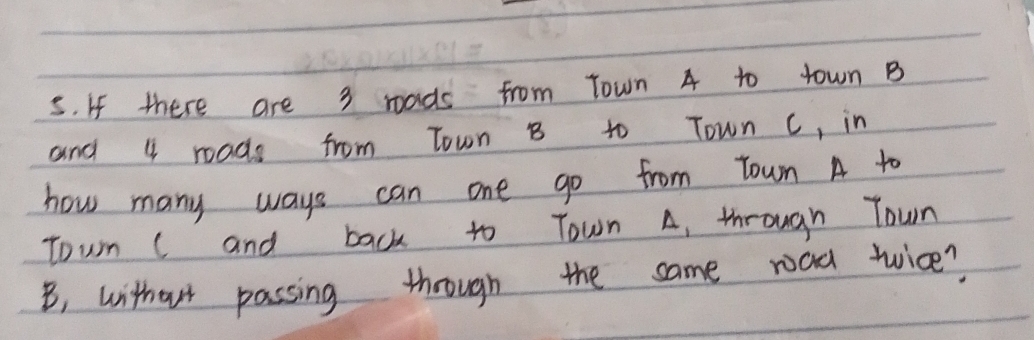 5. If there are 3 roads from Town A to town B
and 4 roads from Town B to Town C, in
how many ways can one go from Town A to
Town C and back to Town A, through Town
B, without passing through the same road twice?